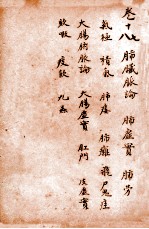 卷十七八 肺臟脈論 肺虛實 肺勞
氣極 積氣 肺痿 肺癰 飛尸鬼疰
大腸腑脈論 大腸虛實 肛門 皮虛實
欬嗽 痰飲 九虫